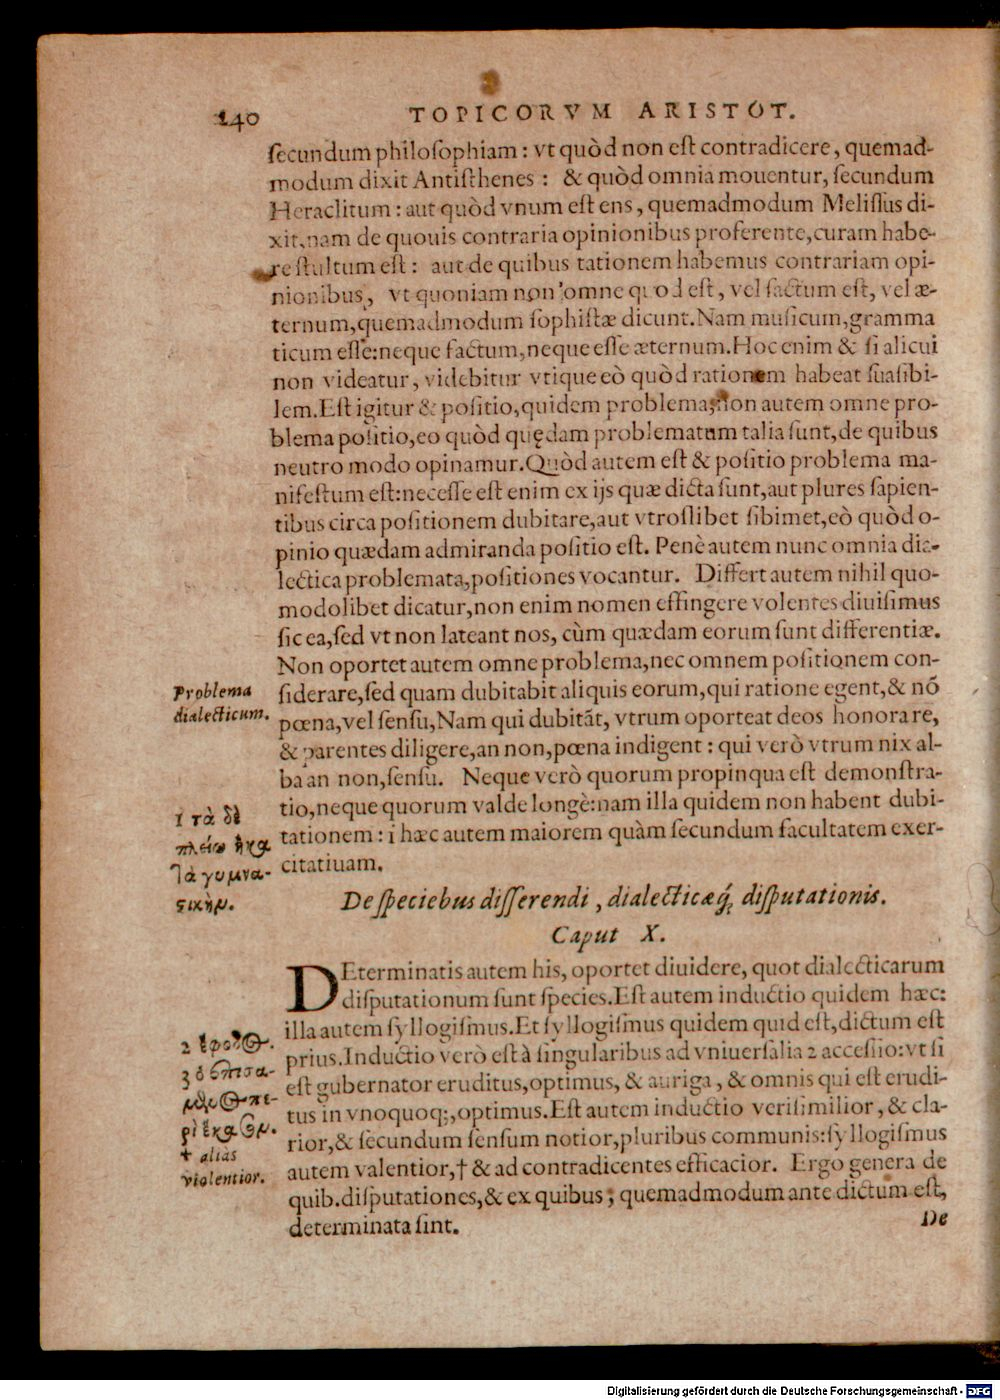 140 TOPICORVM ARISTOT.
ſecundum philoſophiam : vt quòd non eſt contradicere, quemad-
modum dixit Antiſthenes : & quòd omnia mouentur, ſecundum
Heraclitum : aut quòd vnum eſt ens, quemadmodum Meliſſus di-
xit, nam de quouis contraria opinionibus proferente, curam habe-
re ſtultum eſt : aut de quibus rationem habemus contrariam opi-
nionibus, vt quoniam non omne quod eſt, vel factum eſt, vel æ-
ternum, quemadmodum ſophiſtæ dicunt. Nam muſicum, gramma
ticum eſſe: neque factum, neque eſſe æternum. Hoc enim & ſi alicui
non videatur, videbitur vtique eò quòd rationem habeat ſuaſibi-
lem. Eſt igitur & poſitio, quidem problema, non autem omne pro-
blema poſitio, eo quòd quędam problematum talia ſunt, de quibus
neutro modo opinamur. Quòd autem eſt & poſitio problema ma-
nifeſtum eſt: neceſſe eſt enim ex ijs quæ dicta ſunt, aut plures ſapien-
tibus circa poſitionem dubitare, aut vtroſlibet ſibimet, eò quòd o-
pinio quædam admiranda poſitio eſt. Penè autem nunc omnia dia-
lectica problemata, poſitiones vocantur. Differt autem nihil quo-
modolibet dicatur, non enim nomen effingere volentes diuiſimus
ſic ea, ſed vt non lateant nos, cùm quædam eorum ſunt differentiæ.
Non oportet autem omne problema, nec omnem poſitionem con-
Problema
dialecticum.
ſiderare, ſed quam dubitabit aliquis eorum, qui ratione egent, & nõ
pœna, vel ſenſu, Nam qui dubitãt, vtrum oporteat deos honorare,
& parentes diligere, an non, pœna indigent : qui verò vtrum nix al-
ba an non, ſenſu. Neque verò quorum propinqua eſt demonſtra-
tio, neque quorum valde longè: nam illa quidem non habent dubi-
1 τὰ δὲ
πλείω ἢ κα
τὰ γυμνα-
ςικήν.
tationem : 1 hæc autem maiorem quàm ſecundum facultatem exer-
citatiuam.
De ſpeciebus diſſerendi, dialecticæq́; diſputationis.
Caput X.
DEterminatis autem his, oportet diuidere, quot dialecticarum
diſputationum ſunt ſpecies. Eſt autem inductio quidem hæc:
illa autem ſyllogiſmus. Et ſyllogiſmus quidem quid eſt, dictum eſt
2 ἔφοδος.
3 ὁ ἐπιςά-
μενος πε-
ρὶ ἕκαςον.
+ alias
violentior.
prius. Inductio verò eſt à ſingularibus ad vniuerſalia 2 acceſſio: vt ſi
eſt gubernator eruditus, optimus, & auriga, & omnis qui eſt erudi-
tus in vnoquoq;, optimus. Eſt autem inductio veriſimilior, & cla-
rior, & ſecundum ſenſum notior, pluribus communis: ſyllogiſmus
autem valentior, † & ad contradicentes efficacior. Ergo genera de
quib. diſputationes, & ex quibus ; quemadmodum ante dictum eſt,
determinata ſint.
De
Digitalisierung gefördert durch die Deutsche Forschungsgemeinschaft - DFG